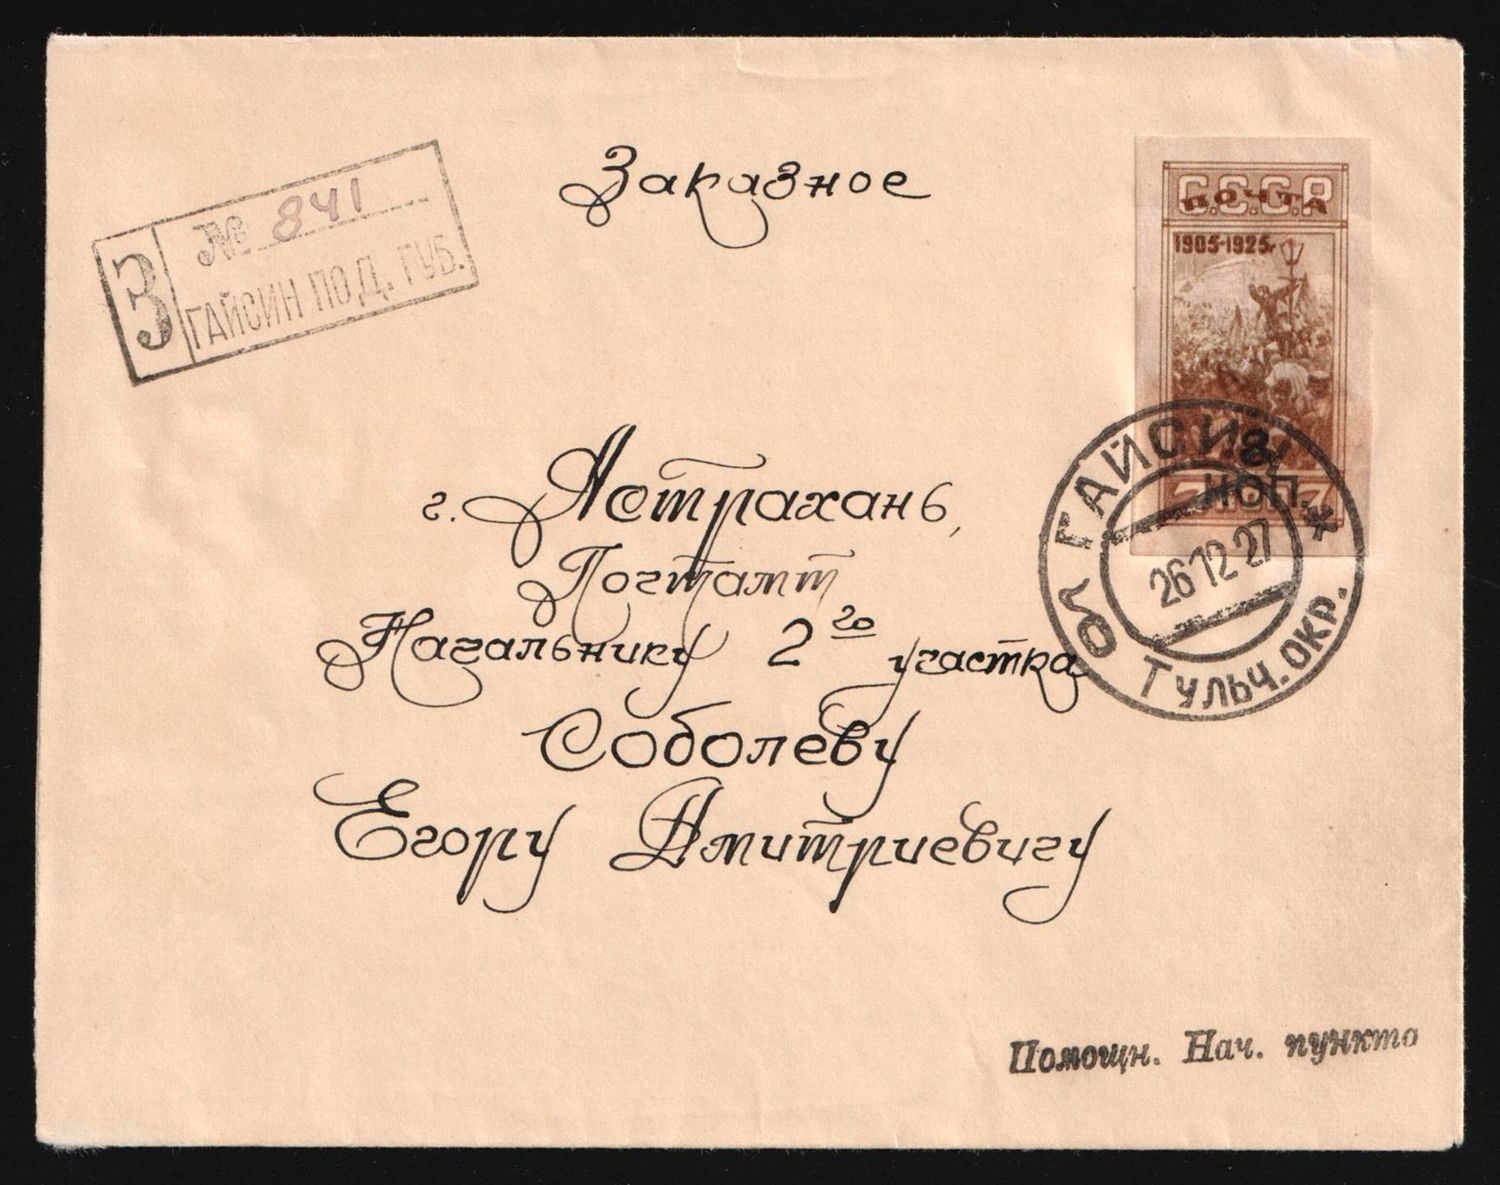 Заказное
№ 841
З
ГАЙСИН ПОД. ГУБ.
С.С.С.Р.
ПОЧТА
1905-1925г
8
КОП.
7 7
ГАЙСИН *
26 12 27
ТУЛЬЧ. ОКР.
г. Астрахань,
Почтамт
Начальнику 2го участка
Соболеву
Егору Дмитриевичу
Помощн. Нач. пункта